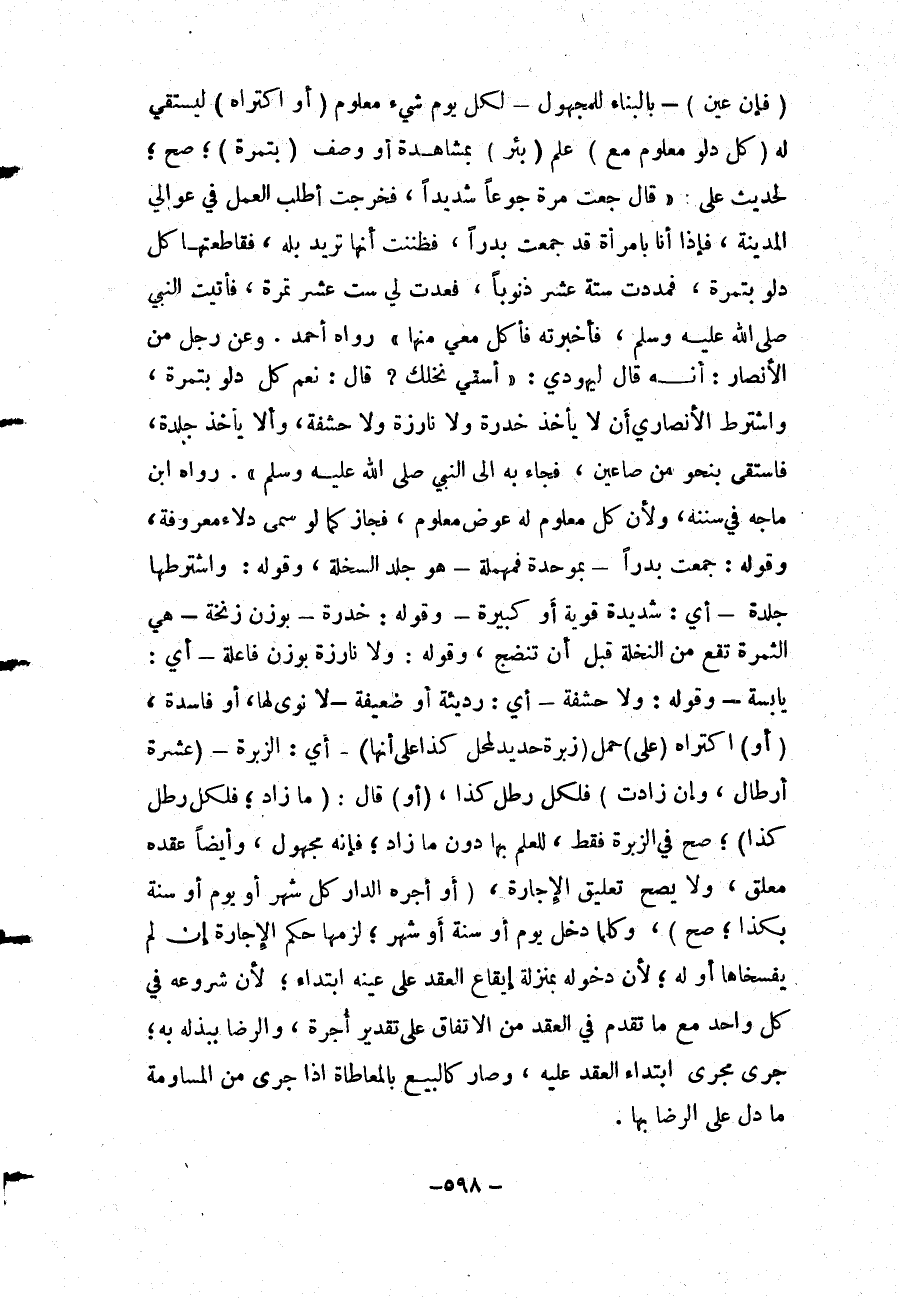 ( فإن عين ) – بالبناء للمجهول – لكل يوم شيء معلوم ( أو اكتراه ) ليستقي
له ( كل دلو معلوم مع ) علم ( بئر ) بمشاهدة أو وصف ( بتمرة ) ؛ صح ؛
لحديث علي : « قال جعت مرة جوعاً شديداً ، فخرجت أطلب العمل في عوالي
المدينة ، فإذا أنا بامرأة قد جمعت بدراً ، فظننت أنها تريد بله ، فقاطعتها كل
دلو بتمرة ، فمددت ستة عشر ذنوباً ، فعدت لي ست عشر تمرة ، فأتيت النبي
صلى الله عليه وسلم ، فأخبرته فأكل معي منها » رواه أحمد . وعن رجل من
الأنصار : أنه قال ليهودي : « أسقي نخلك ? قال : نعم كل دلو بتمرة ،
واشترط الأنصاري أن لا يأخذ خدرة ولا نارزة ولا حشفة ، وألا يأخذ جلدة ،
فاستقى بنحو من صاعين ، فجاء به الى النبي صلى الله عليه وسلم » . رواه ابن
ماجه في سننه ، ولأن كل معلوم له عوض معلوم ، فجاز كما لو سمى دلاء معروفة ،
وقوله : جمعت بدراً – بموحدة فمهملة – هو جلد السخلة ، وقوله : واشترطها
جلدة – أي : شديدة قوية أو كبيرة – وقوله : خدرة – بوزن زنخة – هي
الثمرة تقع من النخلة قبل أن تنضج ، وقوله : ولا نارزة بوزن فاعلة – أي :
يابسة – وقوله : ولا حشفة – أي : رديئة أو ضعيفة – لا نوى لها ، أو فاسدة ،
( أو ) اكتراه ( على ) حمل ( زبرة حديد لمحل كذا على أنها ) – أي : الزبرة – ( عشرة
أرطال ، وإن زادت ) فلكل رطل كذا ، ( أو ) قال : ( ما زاد ؛ فلكل رطل
كذا ) ؛ صح في الزبرة فقط ، للعلم بها دون ما زاد ؛ فإنه مجهول ، وأيضاً عقده
معلق ، ولا يصح تعليق الإجارة ، ( أو أجره الدار كل شهر أو يوم أو سنة
بكذا ؛ صح ) ، وكلما دخل يوم أو سنة أو شهر ؛ لزمها حكم الإجارة إن لم
يفسخاها أو له ؛ لأن دخوله بمنزلة إيقاع العقد على عينه ابتداء ؛ لأن شروعه في
كل واحد مع ما تقدم في العقد من الاتفاق على تقدير أُجرة ، والرضا ببذله به ؛
جرى مجرى ابتداء العقد عليه ، وصار كالبيع بالمعاطاة اذا جرى من المساومة
ما دل على الرضا بها .
– ٥٩٨ –